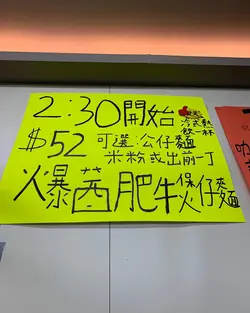 2:30開始
冷或熱
飲一杯
$52 可選:公仔麵
米粉或出前一丁
爆茜肥牛煲仔麵
咖